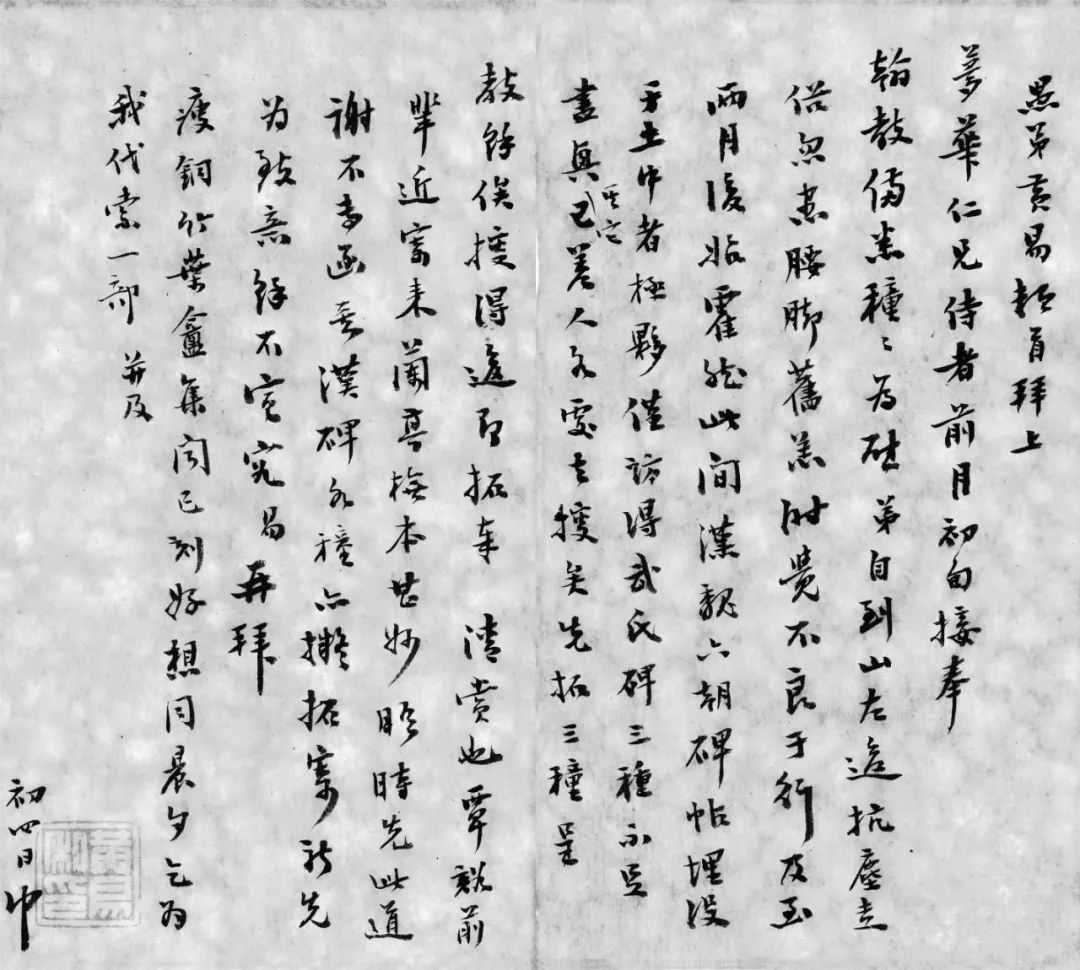 愚弟黄易頓首拜上
夢華仁兄侍者前月初旬接奉
翰教備悉種〻為慰弟自到山左逐抗塵走
俗忽患腰脚舊恙時覺不良于行及至
兩月後始霍然此間漢魏六朝碑帖埋没
于土中者極夥僅訪得武氏碑三種而已
畫與石室已善人永寶之獲矣先拓三種呈
教餘俟搜得遂即拓奉 清賞也覃谿前
輩近寄来蘭亭橅本甚妙晤時先此道
謝不專函奉漢碑各種亦擬拓寄祈先
為致意餘不宣究易再拜
瘦銅竹葉盦集聞已刻好想同晨夕乞為
我代索一部 并及
初四日巾